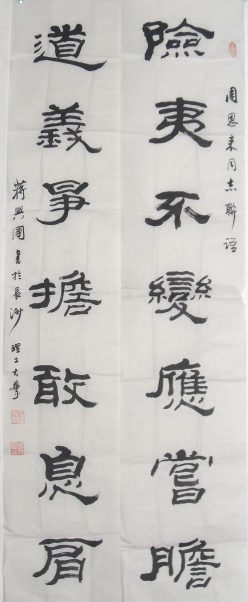 周恩来同志联语
險夷不變應嘗膽
道義爭擔敢息肩
蔣興國書於長沙理工大學